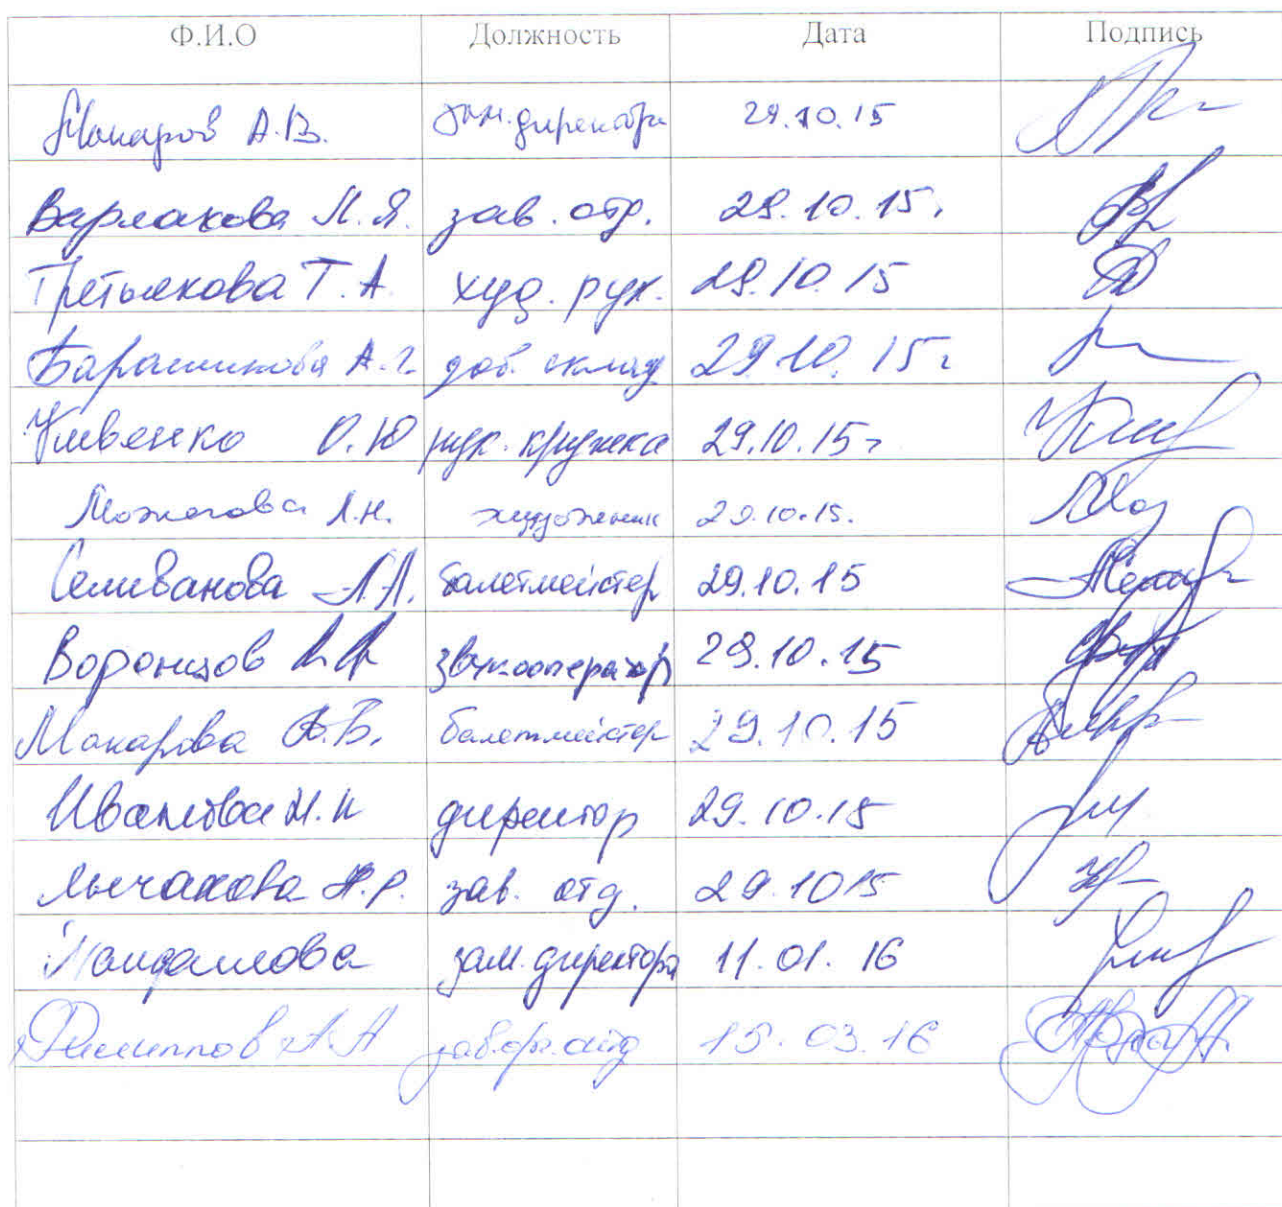 Ф.И.О Должность Дата Подпись
Макаров А.В. зам. директора 29.10.15
Варлакова Л.Я. зав. отд. 29.10.15.
Третьякова Т.А. худ. рук. 29.10.15
Барашникова А.Г. зав. склад 29.10.15г
О.Ю рук. кружка 29.10.15г
Можегова Л.Н. художник 29.10.15.
Селиванова А.А. балетмейстер 29.10.15
Воронцов звукооператор 29.10.15
Макарова А.В. балетмейстер 29.10.15
Иванова Н.Н директор 29.10.15
Лычакова Я.Р. зав. отд. 29.1015
зам. директора 11.01.16
Филиппов А.А 15.03.16